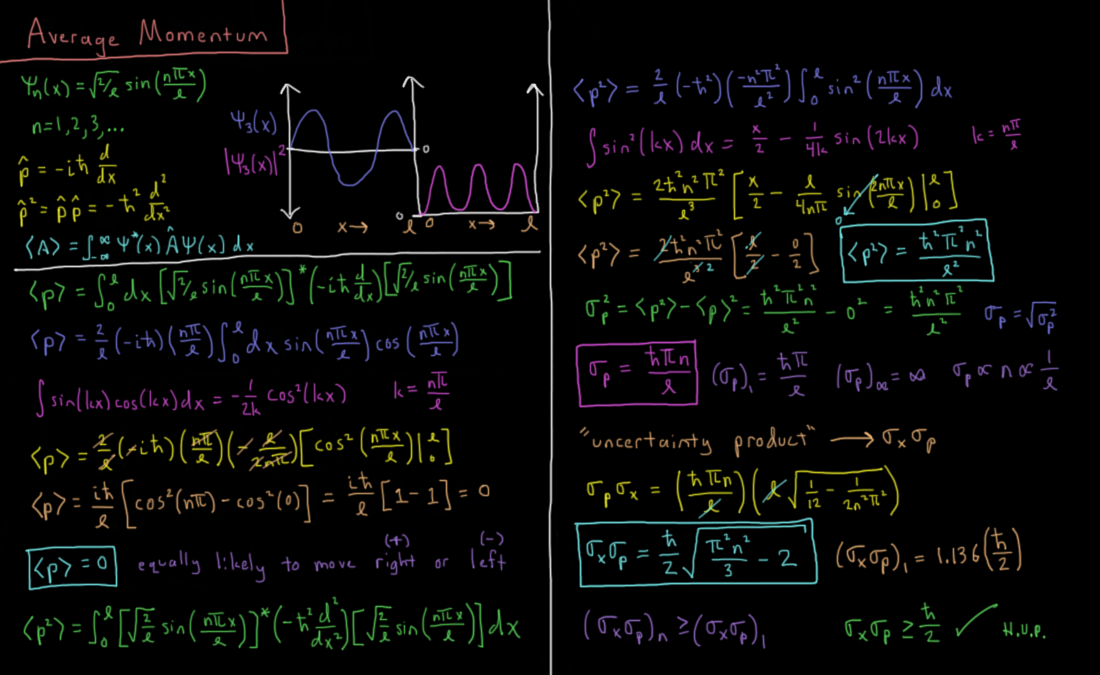 Average Momentum
Ψₙ(x) = √(2/ℓ) sin(nπx/ℓ)
n = 1, 2, 3, ...
p̂ = -iħ d/dx
p̂² = p̂p̂ = -ħ² d²/dx²
⟨A⟩ = ∫_{-∞}^{∞} Ψ*(x) Â Ψ(x) dx
Ψ₃(x)
|Ψ₃(x)|²
0 x→ ℓ
0
0
0 x→ ℓ
⟨p⟩ = ∫₀^ℓ dx [√(2/ℓ) sin(nπx/ℓ)]* (-iħ d/dx) [√(2/ℓ) sin(nπx/ℓ)]
⟨p⟩ = 2/ℓ (-iħ) (nπ/ℓ) ∫₀^ℓ dx sin(nπx/ℓ) cos(nπx/ℓ)
∫ sin(kx) cos(kx) dx = -1/2k cos²(kx) k = nπ/ℓ
⟨p⟩ = 2/ℓ (-iħ) (nπ/ℓ) (-ℓ/2nπ) [cos²(nπx/ℓ)|₀^ℓ]
⟨p⟩ = iħ/ℓ [cos²(nπ) - cos²(0)] = iħ/ℓ [1 - 1] = 0
(+) (-)
⟨p⟩ = 0 equally likely to move right or left
⟨p²⟩ = ∫₀^ℓ [√(2/ℓ) sin(nπx/ℓ)]* (-ħ² d²/dx²) [√(2/ℓ) sin(nπx/ℓ)] dx
⟨p²⟩ = 2/ℓ (-ħ²) (-n²π²/ℓ²) ∫₀^ℓ sin²(nπx/ℓ) dx
∫ sin²(kx) dx = x/2 - 1/4k sin(2kx) k = nπ/ℓ
⟨p²⟩ = 2ħ²n²π²/ℓ³ [x/2 - ℓ/4nπ sin(2nπx/ℓ)|₀^ℓ]
0
⟨p²⟩ = 2ħ²n²π²/ℓ³ ² [ℓ/2 - 0/2] ⟨p²⟩ = ħ²π²n²/ℓ²
σₚ² = ⟨p²⟩ - ⟨p⟩² = ħ²π²n²/ℓ² - 0² = ħ²n²π²/ℓ² σₚ = √(σₚ²)
σₚ = ħπn/ℓ (σₚ)₁ = ħπ/ℓ (σₚ)_∞ = ∞ σₚ ∝ n ∝ 1/ℓ
"uncertainty product" → σₓσₚ
σₚσₓ = (ħπn/ℓ) (ℓ √(1/12 - 1/2n²π²))
σₓσₚ = ħ/2 √(π²n²/3 - 2) (σₓσₚ)₁ = 1.136 (ħ/2)
(σₓσₚ)ₙ ≥ (σₓσₚ)₁ σₓσₚ ≥ ħ/2 ✓ H.U.P.